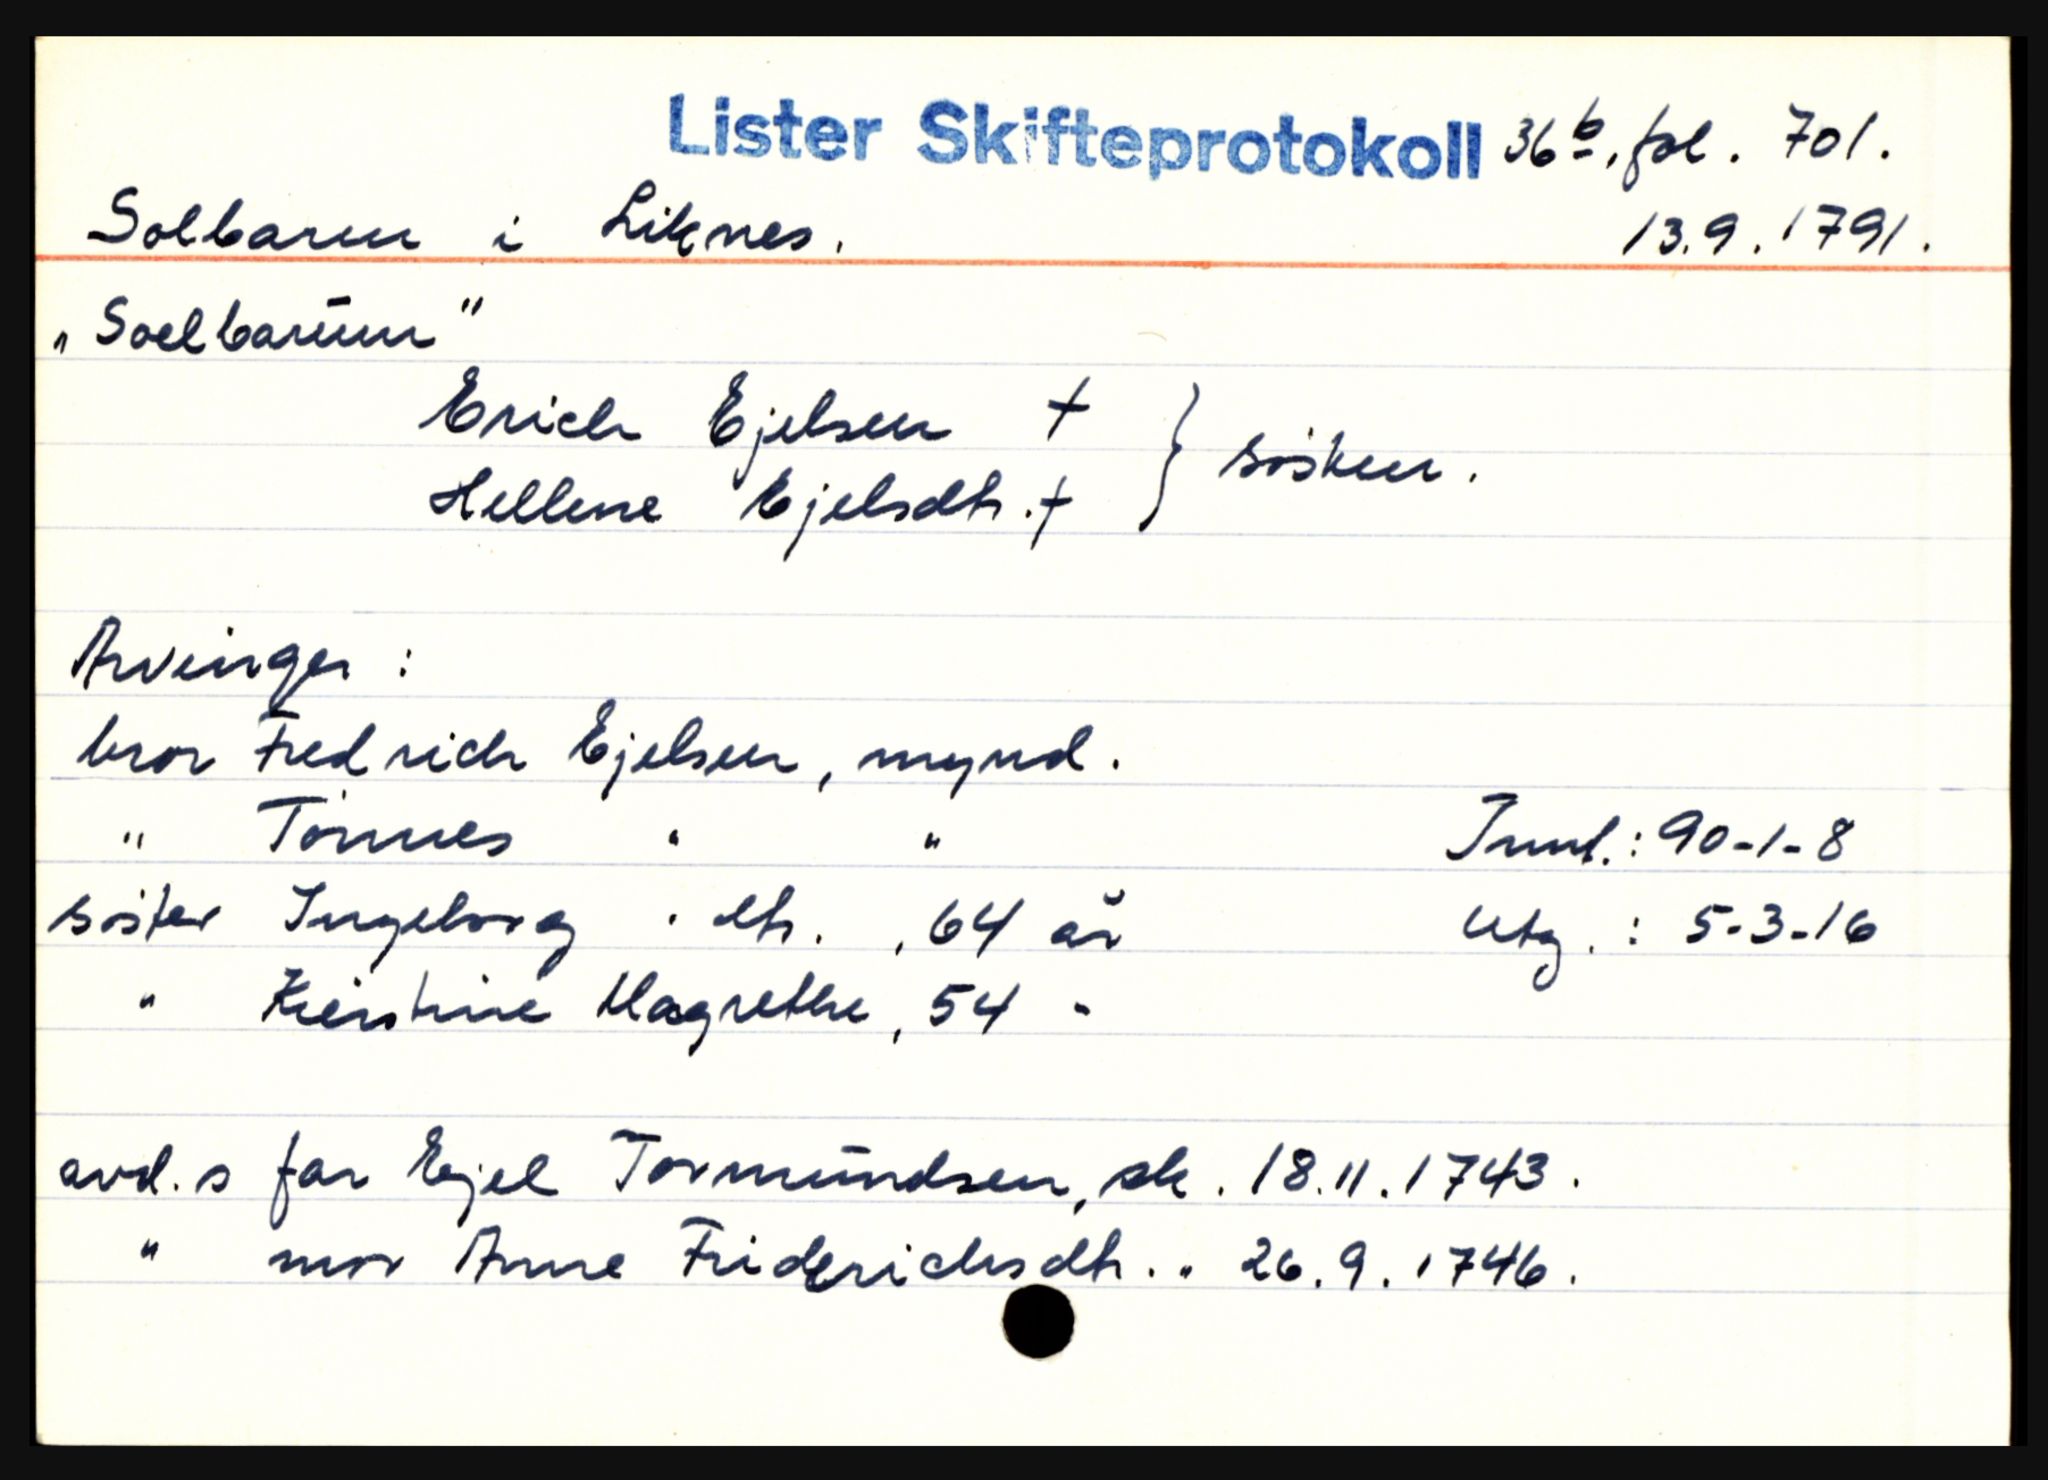 Lister Skifteprotokoll 36b, fol. 701.
Solbarm i Liknes. 13.9.1791.
"Soelbarüm"
Erich Ejelsen †
Hellene Ejelsdtr. † } søsken.
Arvinger :
bror Fredrich Ejelsen, mynd.
" Tönnes " "
Innt. : 90-1-8
søster Ingeborg " dtr. , 64 år
Utg. : 5-3-16
" Kierstine Magrethe, 54 "
avd. s far Ejel Tormündsen, sk. 18.11.1743.
" mor Anne Friderichsdtr. " 26.9.1746.